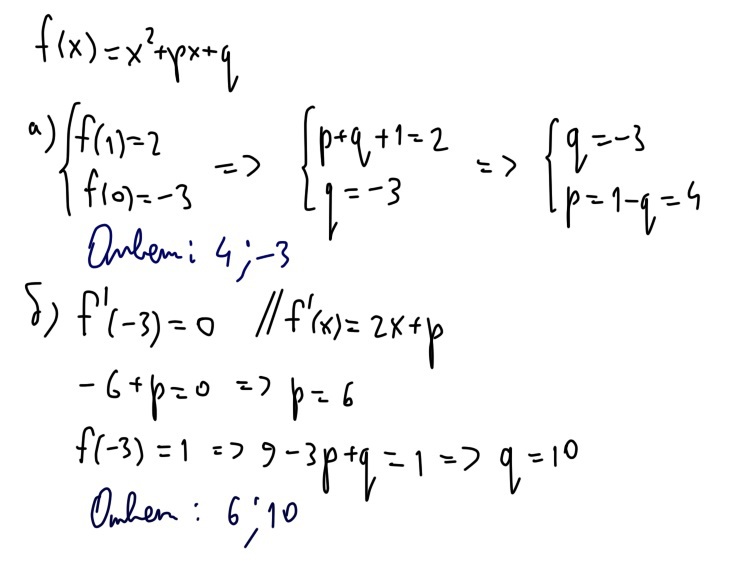 f(x)=x²+px+q
а) {f(1)=2 f(0)=-3 => {p+q+1=2 q=-3 => {q=-3 p=1-q=4
Ответ: 4;-3
б) f'(-3)=0 //f'(x)=2x+p
-6+p=0 => p=6
f(-3)=1 => 9-3p+q=1 => q=10
Ответ: 6;10